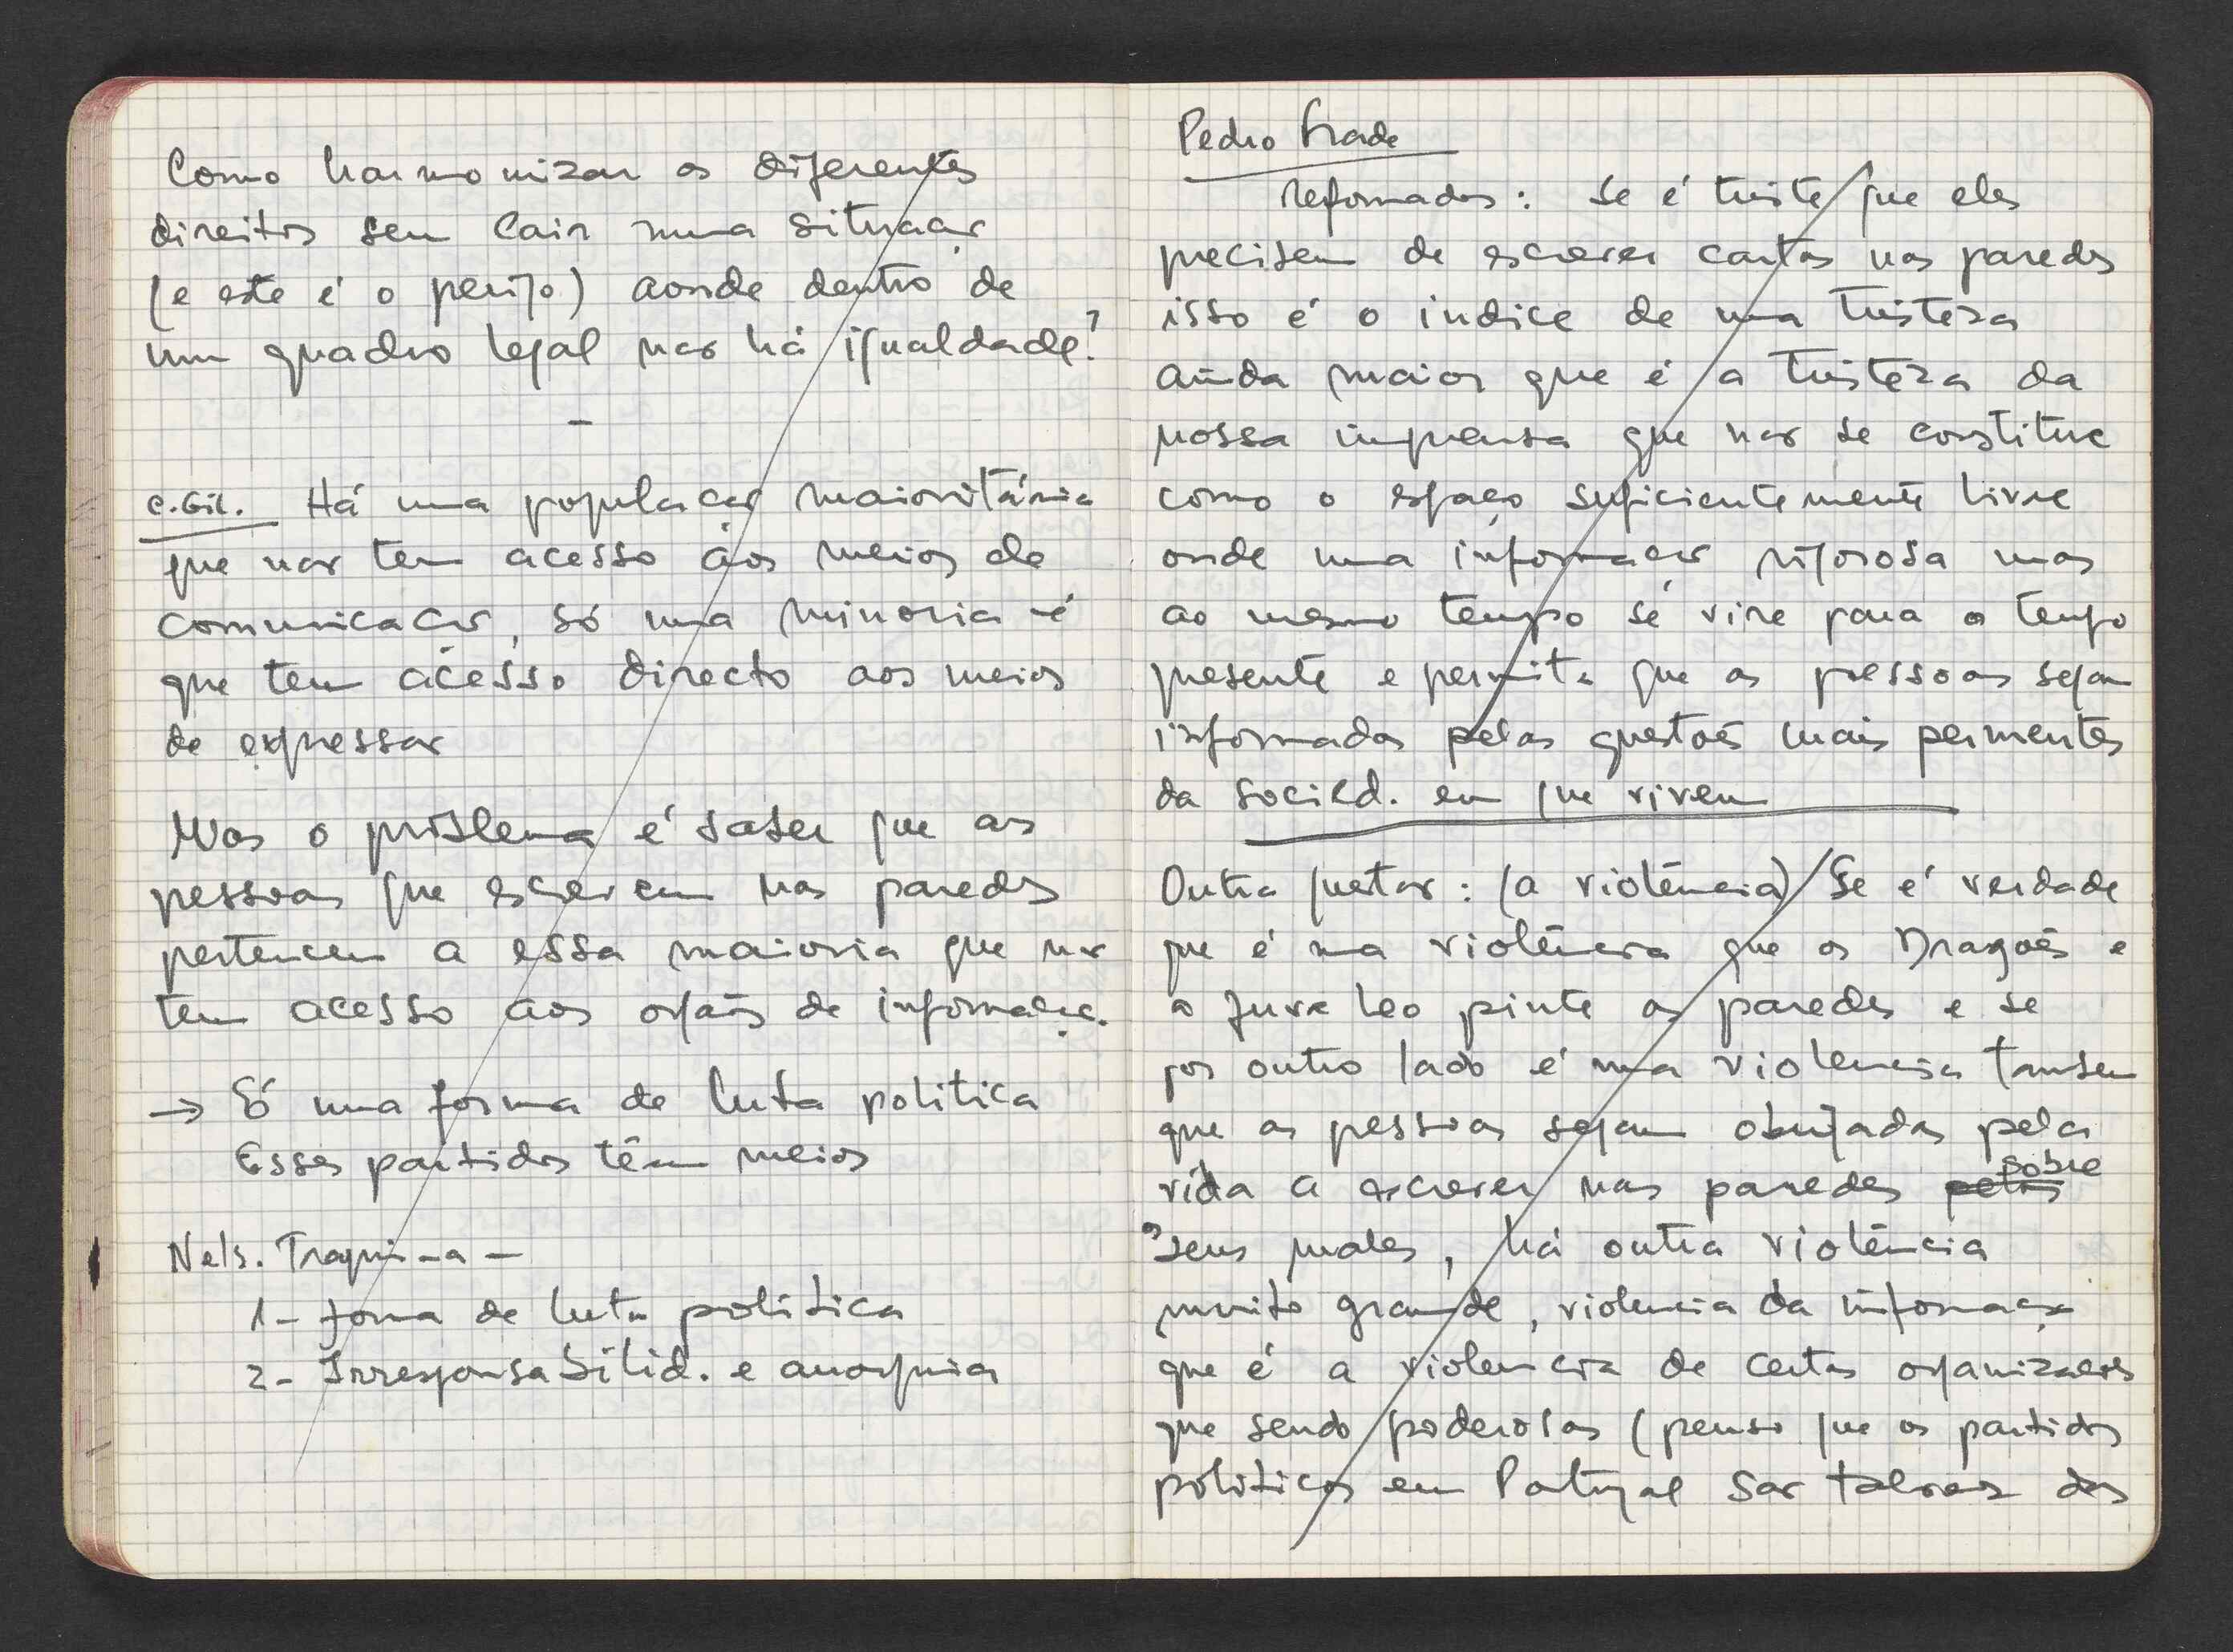 Como harmonizar os diferentes
direitos sem cair numa situação
(e este é o perigo) aonde dentro de
um quadro legal não há igualdade?
-
C. Gil. Há uma população maioritária
que não tem acesso aos meios de
comunicação, só uma minoria é
que tem acesso directo aos meios
de expressão
Mas o problema é saber que as
pessoas que escrevem nas paredes
pertencem a essa maioria que não
tem acesso aos orgãos de informaç.
→ Só uma forma de luta politica
Esses partidos têm meios
Nels. Traquina -
1 - forma de luta politica
2 - Irresponsabilid. e anarquia
Pedro Frade
Reformados: Se é triste que eles
precisem de escrever cartas nas paredes
isso é o indice de uma tristeza
ainda maior que é a tristeza da
nossa imprensa que não se constitue
como o espaço suficientemente livre
onde uma informação rigorosa mas
ao mesmo tempo se vire para o tempo
presente e permita que as pessoas sejam
informadas pelas questões mais permentes
da socied. em que vivem
Outra questão: (a violência) Se é verdade
que é uma violência que os Dragões e
a Juve Leo pinte as paredes e se
por outro lado é uma violencia tambem
que as pessoas sejam obrigadas pela
vida a escrever nas paredes pelos sobre
os seus males, há outra violência
muito grande, violencia da informação
que é a violencia de certas organizações
que sendo poderosas (penso que os partidos
politicos em Portugal são talvez das